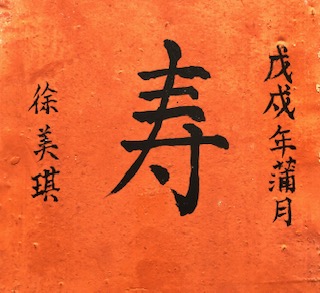 戊戌年蒲月
寿
徐美琪